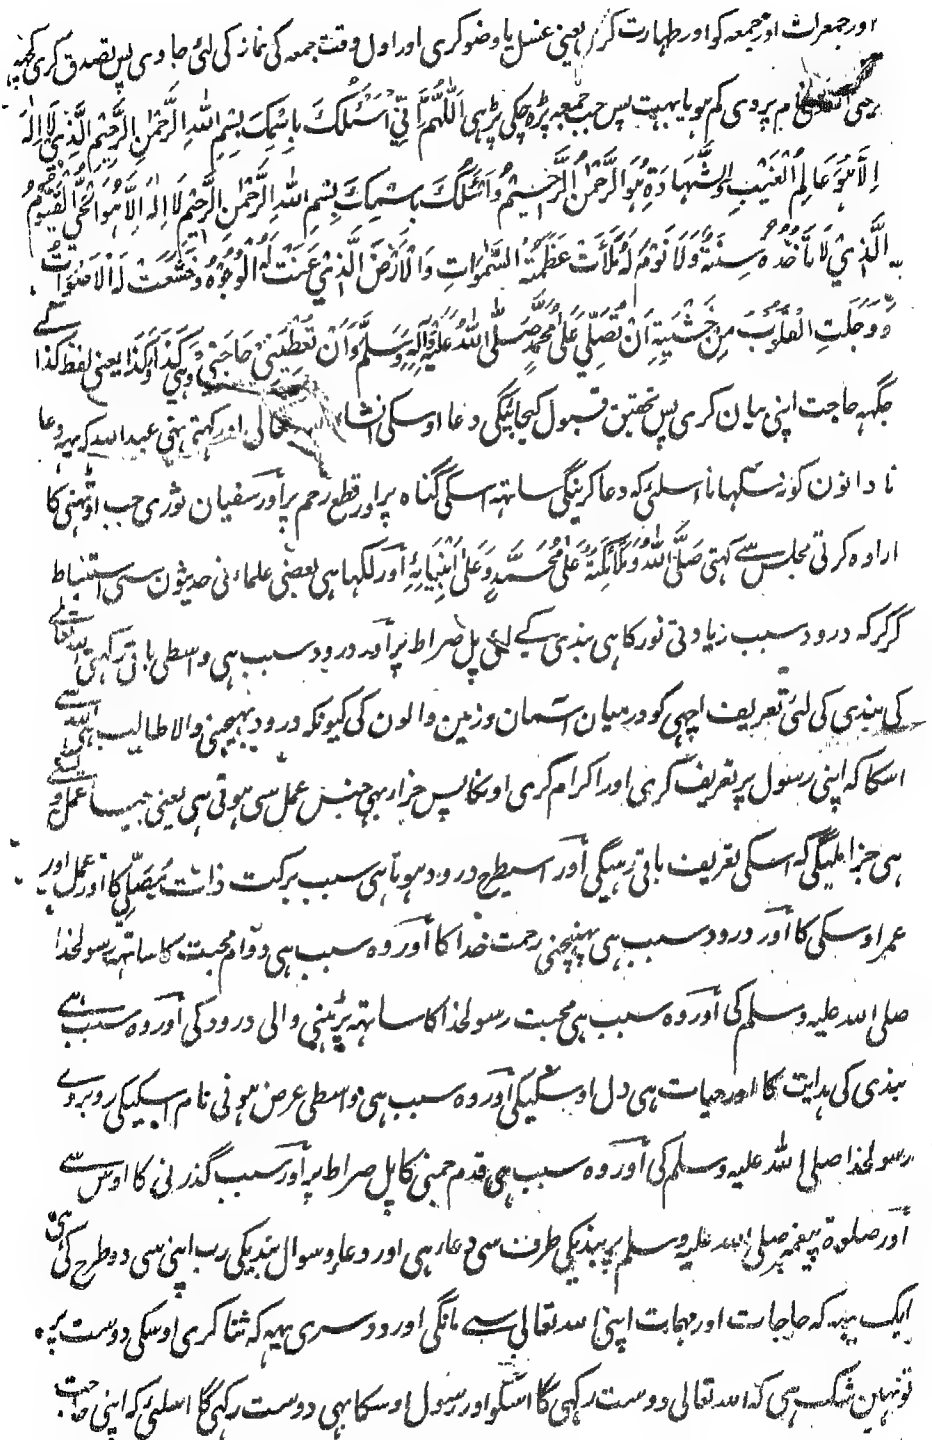 اور جمعرات اور جمعہ کو اور طہارت کرے یعنی غسل یا وضو کری اور اول وقت جمعہ کی نماز کی لئی جاوی پس تصدق کری کچھہ
پر دی کم ہو یا بہت پس جب جمعہ پڑہ چکی پڑہی اَللّٰهُمَّ اِنِّیْ اَسْئَلُكَ بِاسْمِكَ بِسْمِ اللهِ الرَّحْمٰنِ الرَّحِیْمِ الَّذِیْ لَا اِلٰهَ
اِلَّا هُوَ عَالِمُ الْغَیْبِ وَالشَّهَادَةِ هُوَ الرَّحْمٰنُ الرَّحِیْمُ وَاَسْئَلُكَ بِاسْمِكَ بِسْمِ اللهِ الرَّحْمٰنِ الرَّحِیْمِ لَا اِلٰهَ اِلَّا هُوَ الْحَیُّ الْقَیُّوْمُ
الَّذِیْ لَا تَأْخُذُهٗ سِنَةٌ وَّلَا نَوْمٌ لَهٗ مَلَأَتْ عَظَمَتُهُ السَّمٰوَاتِ وَالْاَرْضَ الَّذِیْ عَنَتْ لَهُ الْوُجُوْهُ وَخَشَعَتْ لَهُ الْاَصْوَاتُ
وَوَجِلَتِ الْقُلُوْبُ مِنْ خَشْیَتِهٖ اَنْ تُصَلِّیَ عَلٰی مُحَمَّدٍ صَلَّی اللهُ عَلَیْهِ وَاٰلِهٖ وَسَلَّمَ وَاَنْ تُعْطِیَنِیْ حَاجَتِیْ وَهِیَ كَذَا وَكَذَا یعنی لفظ کذا کے
جگہہ حاجت اپنی بیان کری پس تحقیق قبول کیجائیگی دعا اوسکی انشاء تعالی اور کہتی تہی عبداللہ کہ یہہ دعا
نادانون کو نہ سکہانا اسلئی کہ دعا کرینگی ساتہہ اسکی گناہ پر اور قطع رحم پر اور سفیان ثوری جب اوٹہنی کا
ارادہ کرتی مجلس سے کہتی صَلَّی اللهُ وَمَلَائِكَتُهٗ عَلٰی مُحَمَّدٍ وَّعَلٰی اَنْبِیَائِهٖ اور لکہا ہی بعضی علماء نی حدیثون سی استنباط
کر کر کہ درود سبب زیادتی نور کا ہی بندی کے لئی پل صراط پر اور درود سبب ہی واسطی باقی رکہنی اللہ تعالے
کی بندی کی لئی تعریف اچہی کو درمیان آسمان و زمین والون کی کیونکہ درود بہیجنی والا طالب ہی اللہ سے
اسکا کہ اپنی رسول پر تعریف کری اور اکرام کری اونکا پس جزا بہی جنس عمل سی ہوتی ہی یعنی جیسا عمل
ہی جزا ملیگی کہ اسکی تعریف باقی رہیگی اور اسیطرح درود ہوتا ہی سبب برکت ذات مُصَلِّی کا اور عمل اور
عمر اوسکی کا اور درود سبب ہی پہنچنی رحمت خدا کا اور وہ سبب ہی دوام محبت کا ساتہہ رسولخدا
صلی اللہ علیہ وسلم کی اور وہ سبب ہی محبت رسولخدا کا ساتہہ پڑہنی والی درود کی اور وہ سبب ہے
بندی کی ہدایت کا اور حیات ہی دل اوسکیکی اور وہ سبب ہی واسطی عرض ہونی نام اسکیکی روبروے
رسولخدا صلی اللہ علیہ وسلم کی اور وہ سبب ہی قدم جمنی کا پل صراط پر اور سبب گذرنی کا اوس سے
اور صلوۃ پیغمبر صلی اللہ علیہ وسلم پر بندیکی طرف سی دعا ہی اور دعا و سوال بندیکی رب اپنی سی دو طرح کی ہی
ایک یہہ کہ حاجات اور مہمات اپنی اللہ تعالی سے مانگی اور دوسری یہہ کہ ثنا کری اوسکی دوست پر
تو نہین شک ہی کہ اللہ تعالی دوست رکہی گا اسکو اور رسول اوسکا بہی دوست رکہی گا اسلئی کہ اپنی